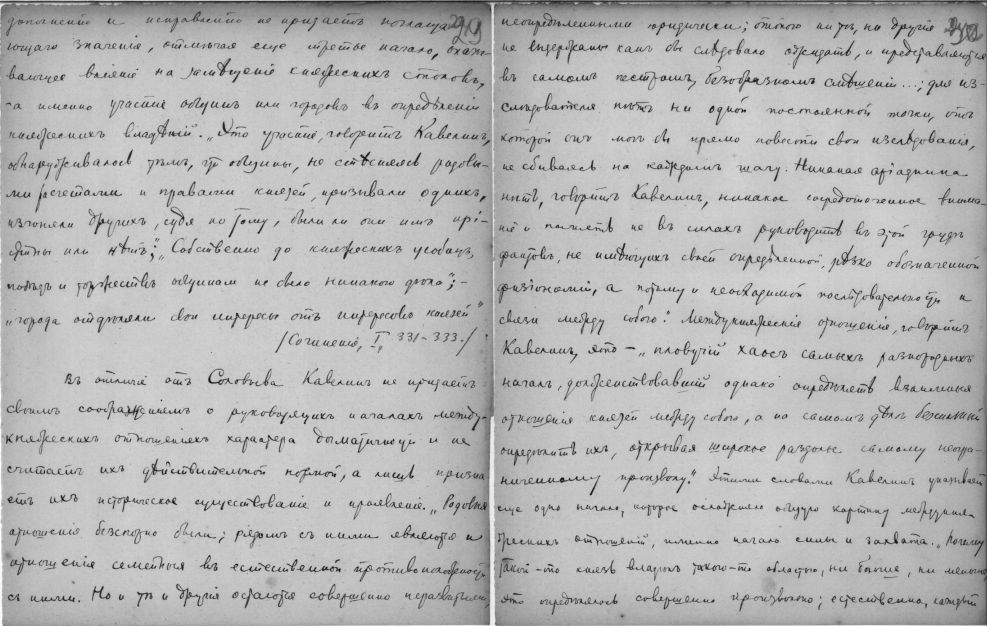 дополненію и исправленію не придаетъ поглаща-
29
ющаго значенія, отмѣчая еще третье начало, оказы-
вающее вліяніе на замѣщеніе княжескихъ столовъ,
а именно участіе общинъ или городовъ въ опредѣленіи
княжескихъ владѣній. „Это участіе, говоритъ Кавелинъ,
обнаруживалось тѣмъ, что общины, не стѣсняясь родовы-
ми расчетами и правами князей, призывали однихъ,
изгоняли другихъ, судя по тому, были ли они имъ прі-
ятны или нѣтъ;" „Собственно до княжескихъ усобицъ,
побѣдъ и торжествъ общинамъ не было никакого дѣла"; –
„города отдѣляли свои интересы отъ интересовъ князей"
/Сочиненія, I, 331-333./
Въ отличіе отъ Соловьева Кавелинъ не придаетъ
своимъ соображеніямъ о руководящихъ началахъ между-
княжескихъ отношеніяхъ характера догматичности и не
считаетъ ихъ дѣйствительной нормой, а лишь призна-
етъ ихъ историческое существованіе и проявленіе. „Родовыя
отношенія безспорно были; рядомъ съ ними являются и
отношенія семейныя въ естественной противоположности
съ ними. Но и тѣ и другія остаются совершенно неразвитыми,
неопредѣленными юридически; оттого ни тѣ, ни другія
не выдержаны какъ бы слѣдовало ожидать, и представляются
въ самомъ пестромъ, безобразномъ смѣшеніи...; для из-
слѣдователя нѣтъ ни одной постоянной точки, отъ
которой онъ могъ бы прямо повести свои изслѣдованія,
не сбиваясь на каждомъ шагу. Никакая аріаднина
нить, говоритъ Кавелинъ, никакое сосредоточенное внима-
ніе и память не въ силахъ руководить въ этой грудѣ
фактовъ, не имѣющихъ своей опредѣленной, рѣзко обозначенной
физіономіи, а потому и необходимой послѣдовательности и
связи между собою." Междукняжескія отношенія, говоритъ
Кавелинъ, это – „пловучій хаосъ самыхъ разнородныхъ
началъ, долженствовавшій однако опредѣлять взаимныя
отношенія князей между собою, а на самомъ дѣлѣ безсильный
опредѣлить ихъ, открывая широкое раздолье самому неогра-
ниченному произволу." Этими словами Кавелинъ указываетъ
еще одно начало, которое осложняло общую картину междукня-
жескихъ отношеній, именно начало силы и захвата. „Почему
такой-то князь владѣлъ такою-то областью, ни больше, ни меньше,
это опредѣлялось совершенно произвольно; естественно, каждый